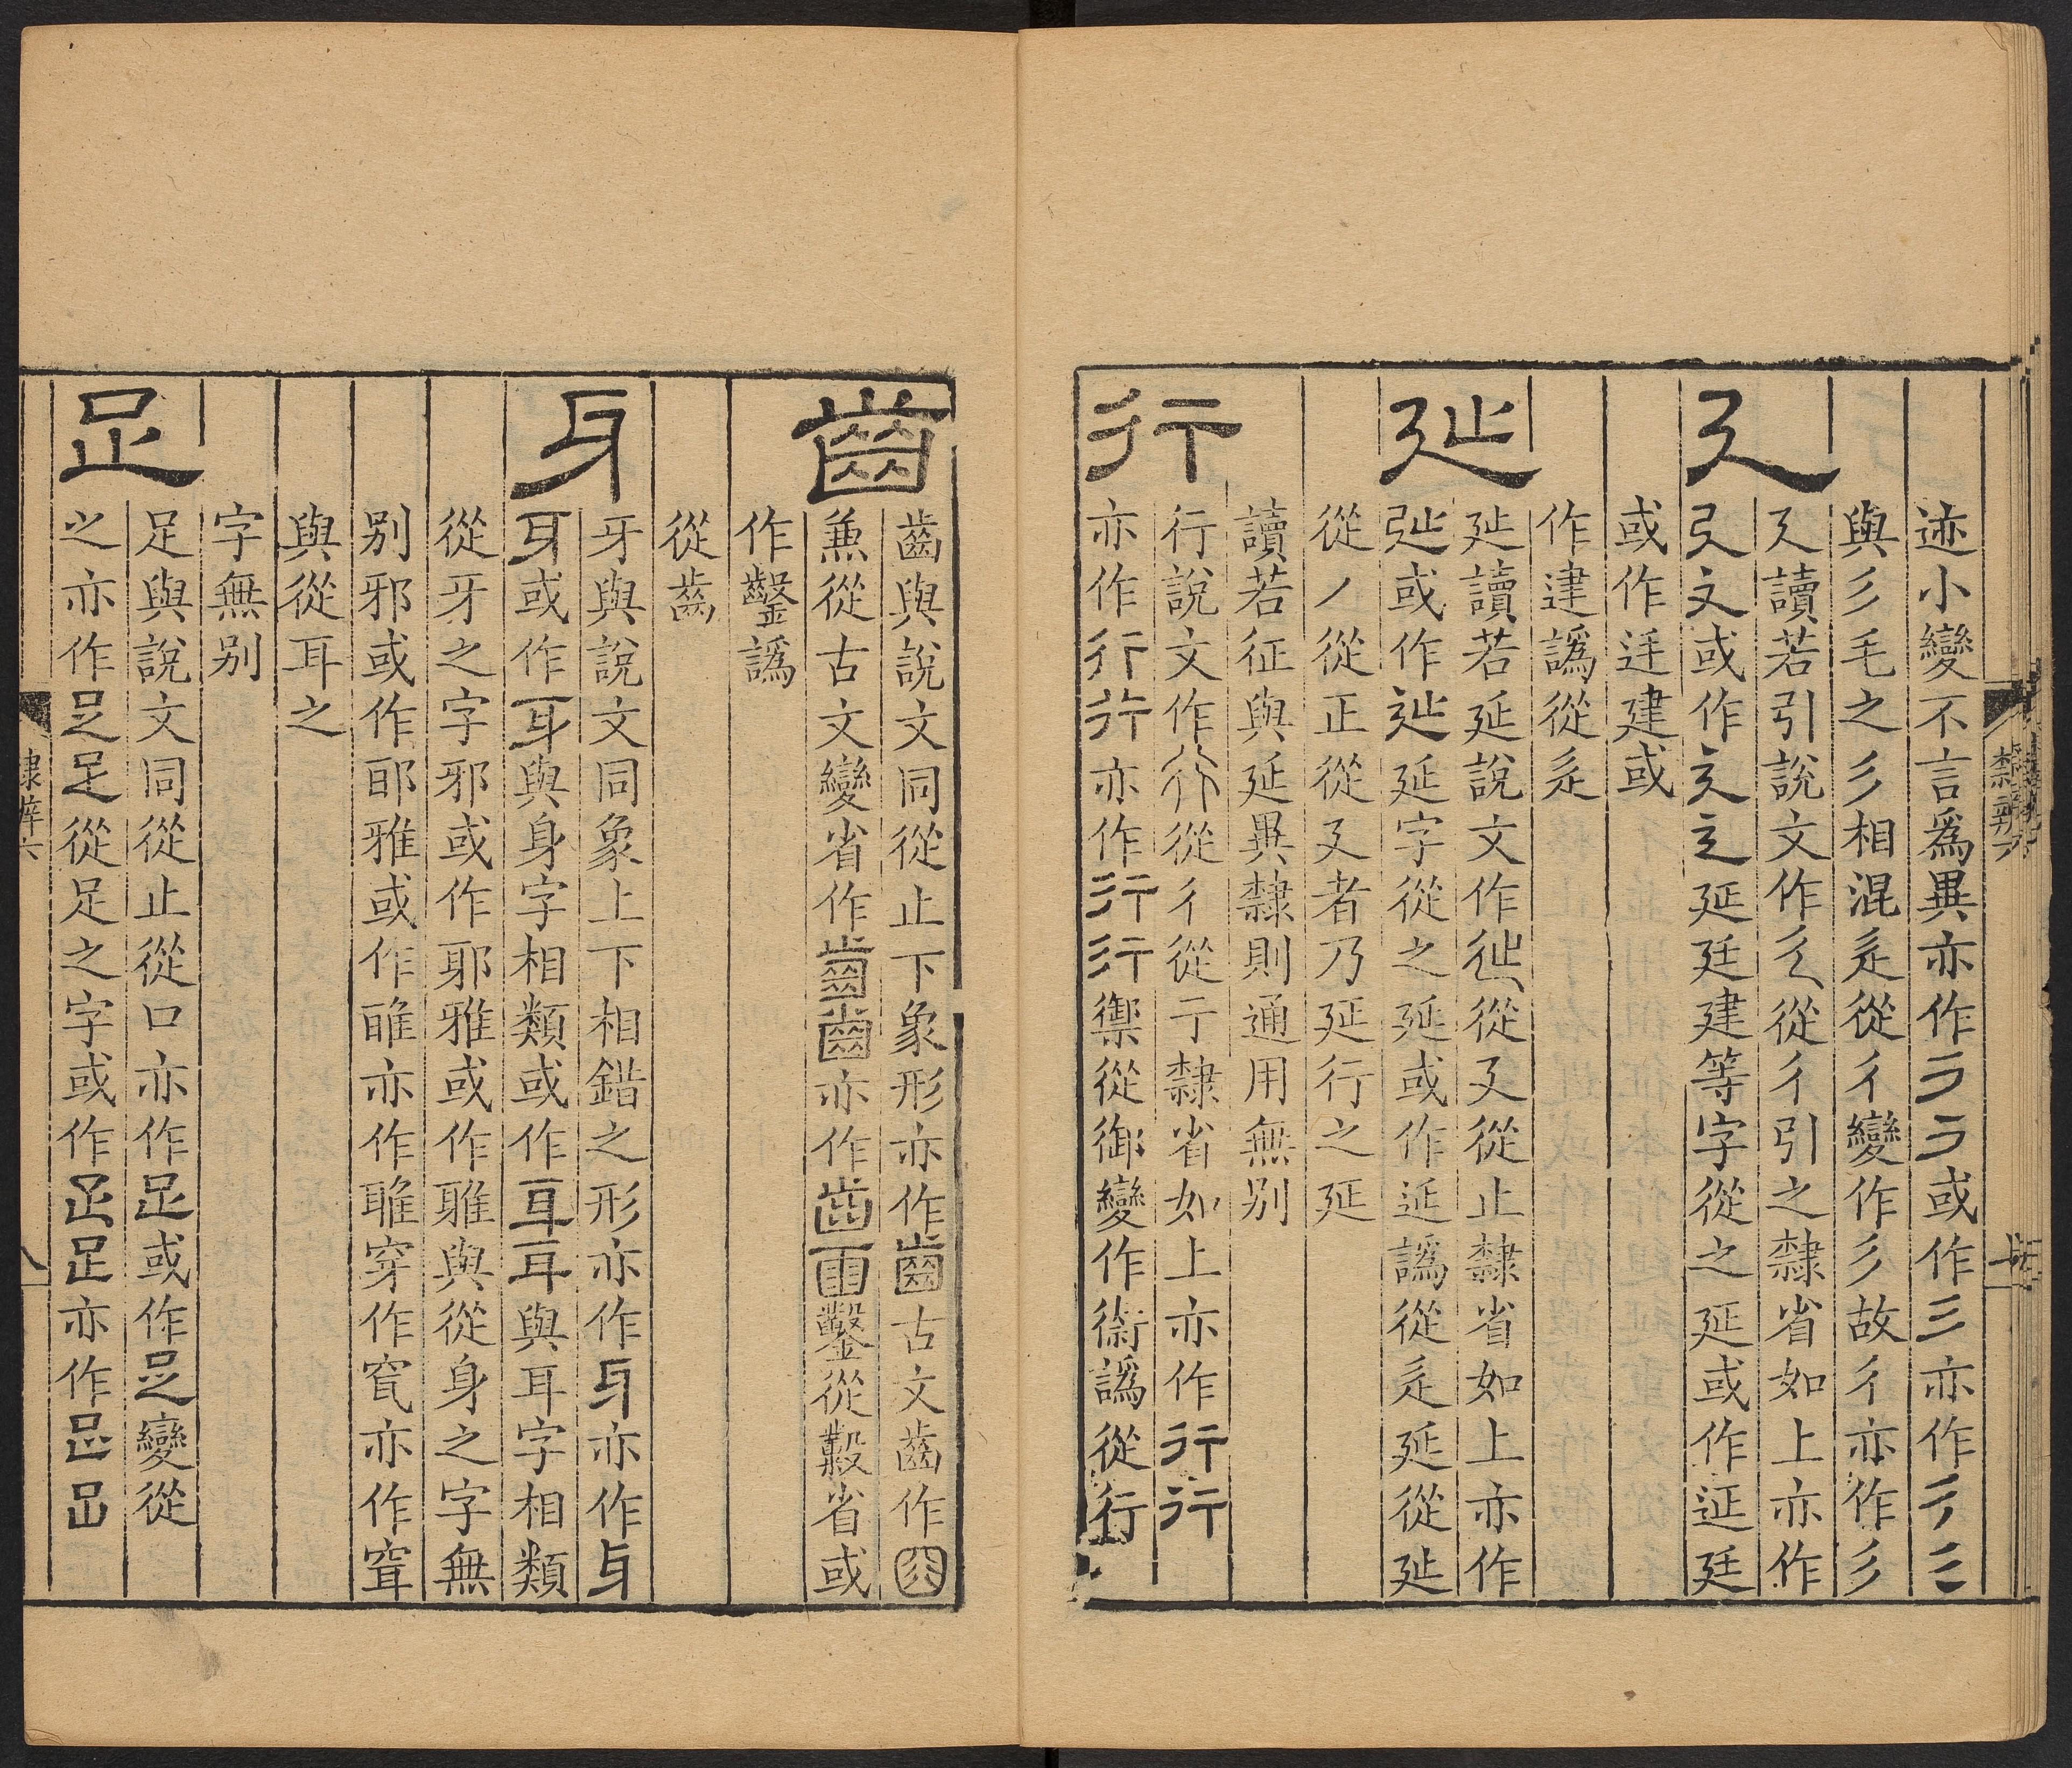 迹小變不言爲異亦作彳彳或作三亦作彳三
與彡毛之彡相混辵從彳變作彡故彳亦作彡
廴
廴讀若引說文作廴從彳引之隸省如上亦作
廴文或作廴廴延廷建等字從之延或作延廷
或作廷建或
作建譌從辵
㢟
㢟讀若延說文作㢟從廴從止隸省如上亦作
㢟或作㢟延字從之延或作延譌從辵延從㢟
從丿從正從廴者乃延行之延
讀若征與延異隸則通用無别
行
行說文作行從彳從亍隸省如上亦作行行
亦作行行亦作行行禦從御變作衘譌從行
隸辨六
齒
齒與說文同從止下象形亦作齒古文齒作𠚒
兼從古文變省作齒齒亦作齒齒鑿從𣫞省或
作鑿譌
從齒
牙
牙與說文同象上下相錯之形亦作牙亦作牙
牙或作牙與身字相類或作耳耳與耳字相類
從牙之字邪或作耶雅或作䧹與從身之字無
别邪或作耶雅或作雅亦作雅穿作穿亦作穿
與從耳之
字無别
足
足與說文同從止從口亦作足或作足變從
之亦作足足從足之字或作足足亦作足足
隸辨六